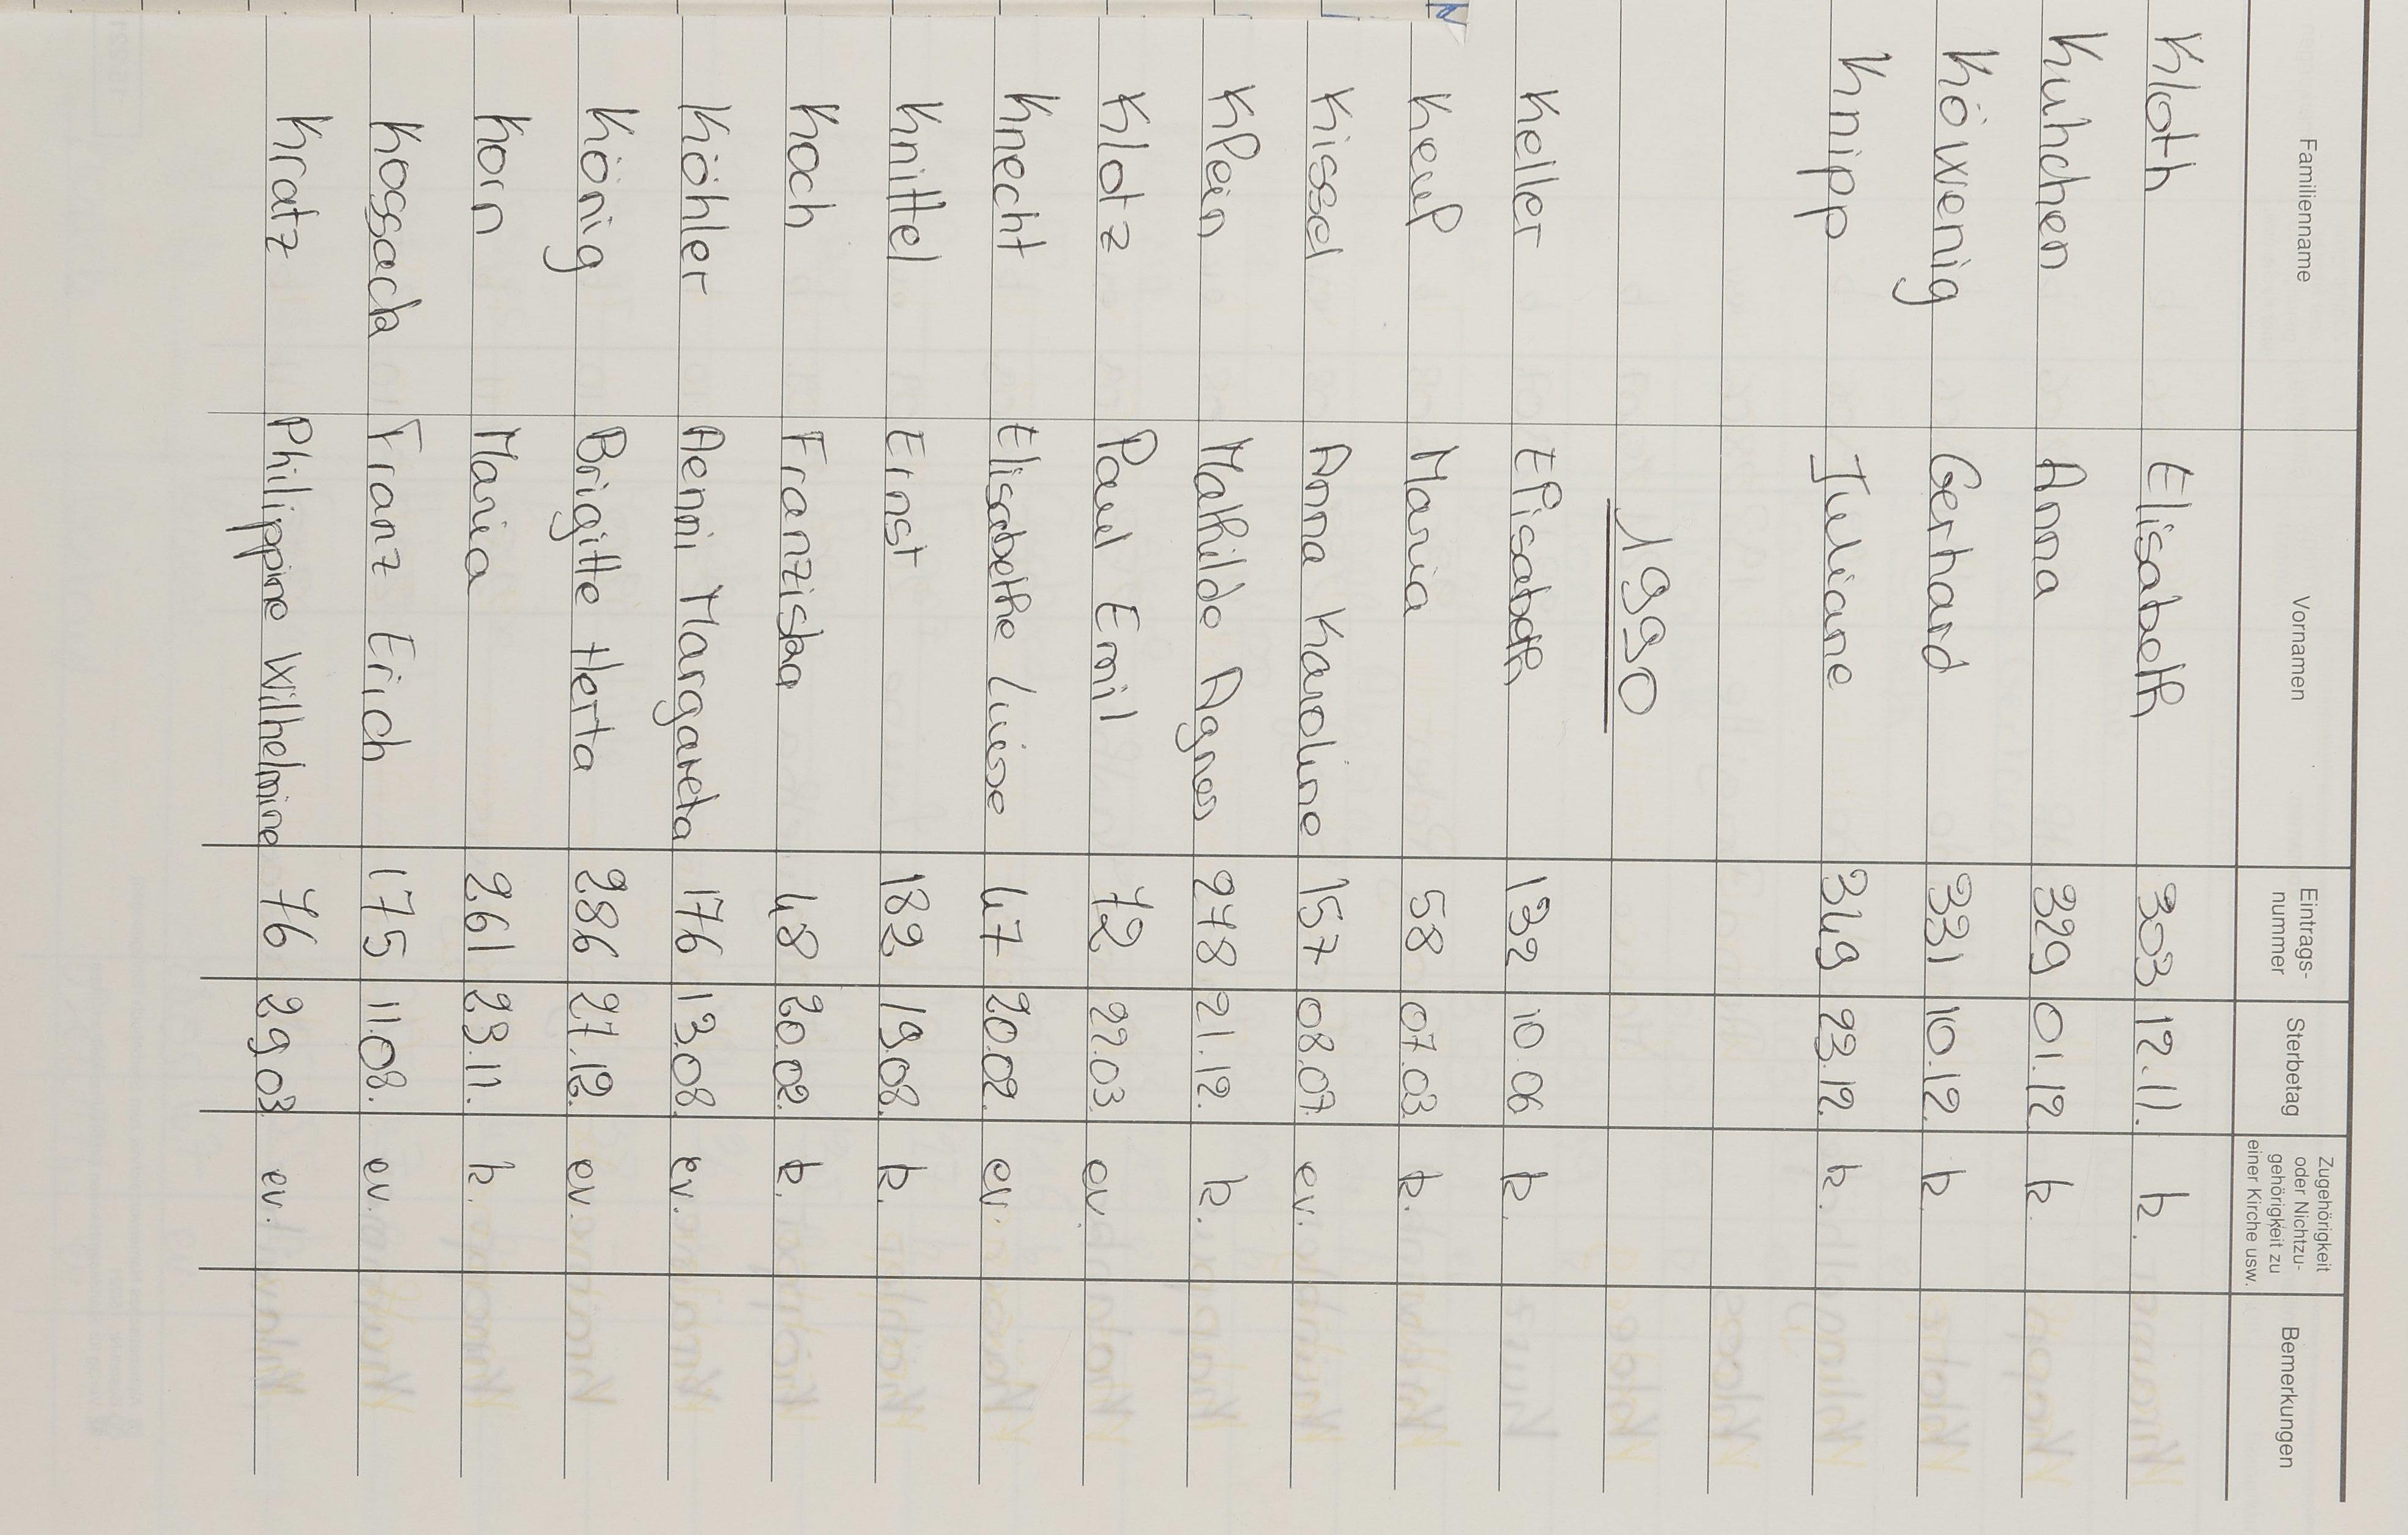 Familienname Vornamen Eintrags-nummer Sterbetag Zugehörigkeit oder Nichtzu-gehörigkeit zu einer Kirche usw. Bemerkungen
Kloth Elisabeth 303 12.11. k.
Kuhchen Anna 329 01.12. k.
Köwenig Gerhard 331 10.12. k.
Knipp Juliane 349 23.12. k.
1990
Keller Elisabeth 132 10.06 k.
Keul Maria 58 07.03. k.
Kissel Anna Karoline 157 08.07. ev.
Klein Mathilde Agnes 278 21.12. k.
Klotz Paul Emil 72 22.03. ev.
Knecht Elisabethe Luise 47 20.02. ev.
Knittel Ernst 182 19.08. k.
Koch Franziska 48 20.02. k.
Köhler Aenni Margareta 176 13.08. ev.
König Brigitte Herta 286 27.12. ev.
Korn Maria 261 23.11. k.
Kossack Franz Erich 175 11.08. ev.
Kratz Philippine Wilhelmine 76 29.03. ev.